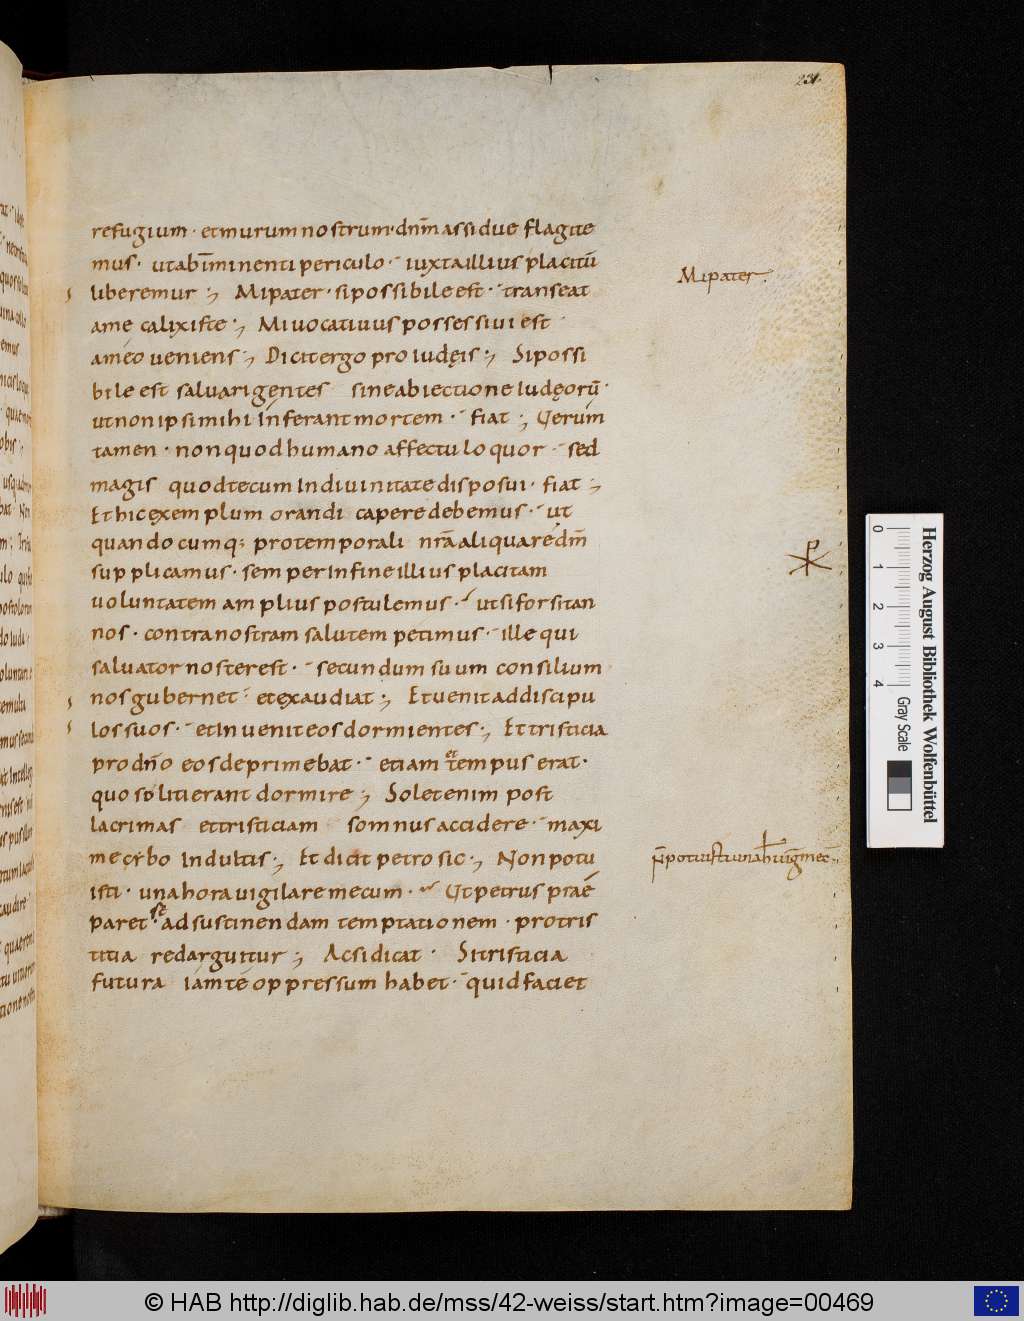 231
refugium · et murum nostrum · dnm̄ assidue flagite
mus · ut ab im̄inenti periculo · iuxta illius placitū
liberemur ; Mi pater · si possibile est · transeat
a me calix iste ; Mi uocatiuus possessiui est
a meo ueniens ; Dicit ergo pro iudęis ; Si possi
bile est saluari gentes sine abiectione Iudęorū ·
ut non ipsi mihi Inferant mortem · fiat ; Uerum
tamen · non quod humano affectu loquor · sed
magis quod tecum In diuinitate disposui · fiat ;
Et hic exemplum orandi capere debemus · ut
quandocumq; pro temporali nr̄a aliqua re dm̄
supplicamus · semper In fine illius placitam
uoluntatem amplius postulemus · ut si forsitan
nos · contra nostram salutem petimus · ille qui
saluator noster est · secundum suum consilium
nos gubernet · et exaudiat ; Et uenit ad discipu
los suos · et Inuenit eos dormientes ; Et tristicia
pro dn̄o eos deprimebat · etiam et tempus erat ·
quo soliti erant dormire ; Solet enim post
lacrimas et tristiciam somnus accidere · maxi
me cybo Indultis ; Et dicit petro sic ; Non potu
isti · una hora uigilare mecum · Ut petrus prae
paret se · ad sustinendam temptationem · pro tris
titia redarguitur ; Ac si dicat · Si tristicia
futura iam te oppressum habet · quid faciet
Mi pater ·
Herzog August Bibliothek Wolfenbüttel
Gray Scale
0
1
2
3
4
© HAB http://diglib.hab.de/mss/42-weiss/start.htm?image=00469